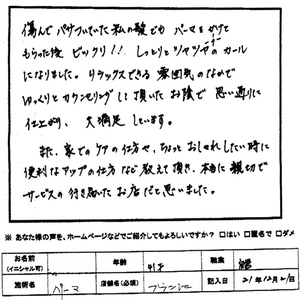 傷んでパサついていた私の髪でもパーマをかけて
もらった後ビックリ!! しっとりとツヤツヤのカール
になりました。リラックスできる雰囲気のなかで
ゆっくりとカウンセリングして頂いたお陰で思い通りに
仕上がり、大満足しています。
また、家でのケアの仕方や、ちょっとおしゃれしたい時に
便利なアップの仕方など教えて頂き、本当に親切で
サービスの行き届いたお店だと思いました。
※ あなた様の声を、ホームページなどでご紹介してもよろしいですか? □はい □匿名で □ダメ
お名前
(イニシャル可)
年齢
職業
施術名 パーマ 店舗名(必須)
21年12月21日